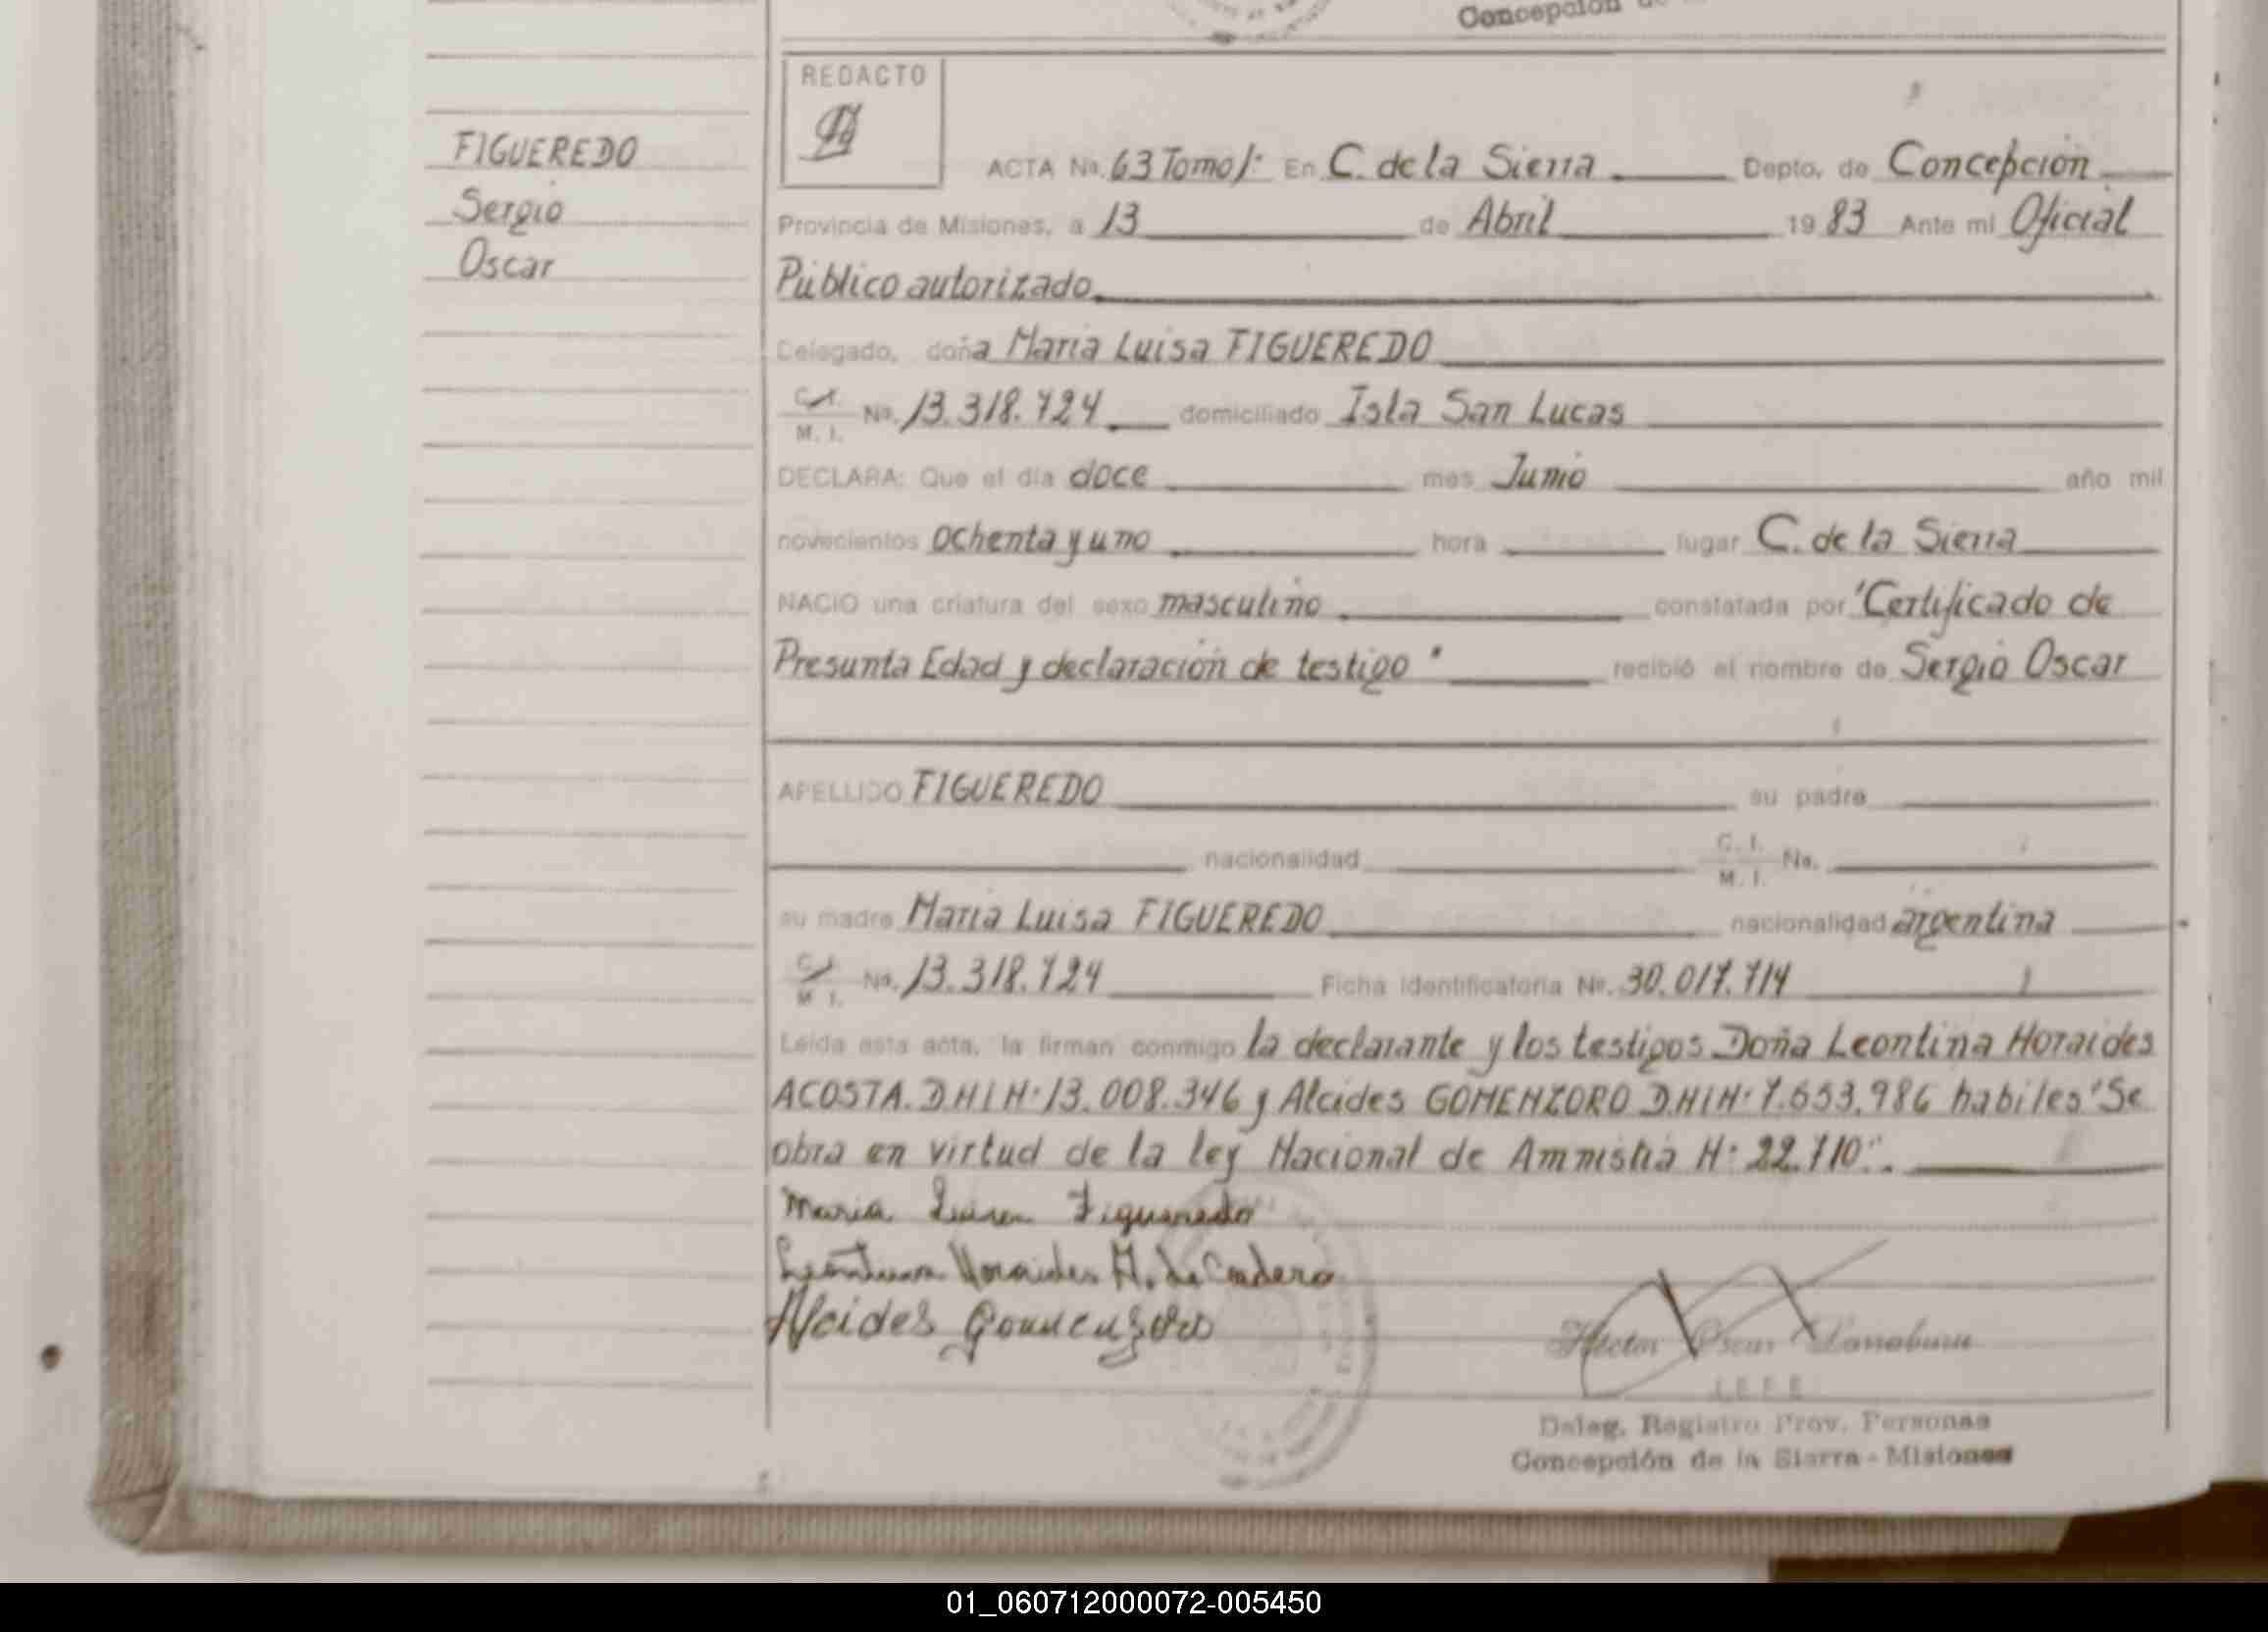 Concepción de
REDACTO
FIGUEREDO
Sergio
Oscar
ACTA No. 63 Tomo I: En C. de la Sierra Depto. de Concepción
Provincia de Misiones, a 13 de Abril 1983 Ante mi Oficial
Público autorizado
Delegado, doña Maria Luisa FIGUEREDO
C.I. M. I. No. 13.318.724 domiciliado Isla San Lucas
DECLARA: Que el día doce mes Junio año mil
novecientos ochenta y uno hora lugar C. de la Sierra
NACIO una criatura del sexo masculino constatada por "Certificado de
Presunta Edad y declaración de testigo" recibió el nombre de Sergio Oscar
APELLIDO FIGUEREDO su padre
nacionalidad C. I. M. I. No.
su madre Maria Luisa FIGUEREDO nacionalidad argentina
C.I. M I. No. 13.318.724 Ficha Identificatoria Nº. 30.017.714
Leída esta acta, la firman conmigo la declarante y los testigos Doña Leontina Horaides
ACOSTA. DNI N· 13.008.346 y Alcides GOMENZORO DNI N· 7.653.986 habiles "Se
obra en virtud de la ley Nacional de Amnistia N· 22.710".
Maria Luisa Figueredo
Leontina Horaides A. de
Alcides Gomenzoro
Héctor Oscar
JEFE
Deleg. Registro Prov. Personas
Concepción de la Sierra - Misiones
01_060712000072-005450